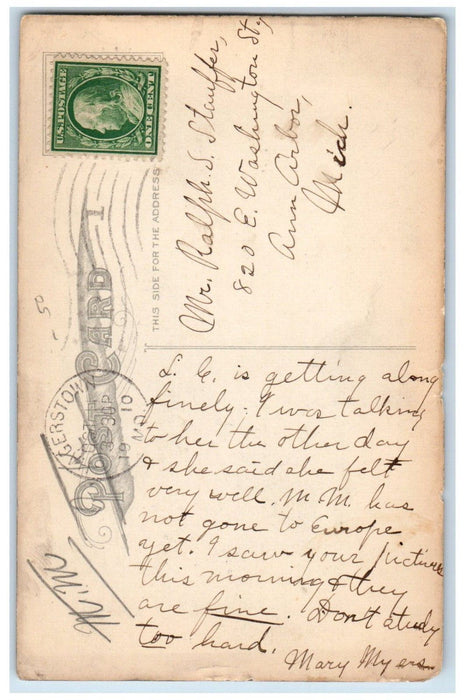 U.S. POSTAGE
ONE CENT
POST CARD
THIS SIDE FOR THE ADDRESS
1
GERSTOW
30 P
1910
MD.
Mr. Ralph S. Stauffer,
820 E. Washington St,
Ann Arbor,
Mich.
L. C. is getting along
finely. I was talking
to her the other day
& she said she felt
very well. M M. has
not gone to Europe
yet. I saw your pictures
this morning & they
are fine. Don't study
too hard.
Mary Myers
50